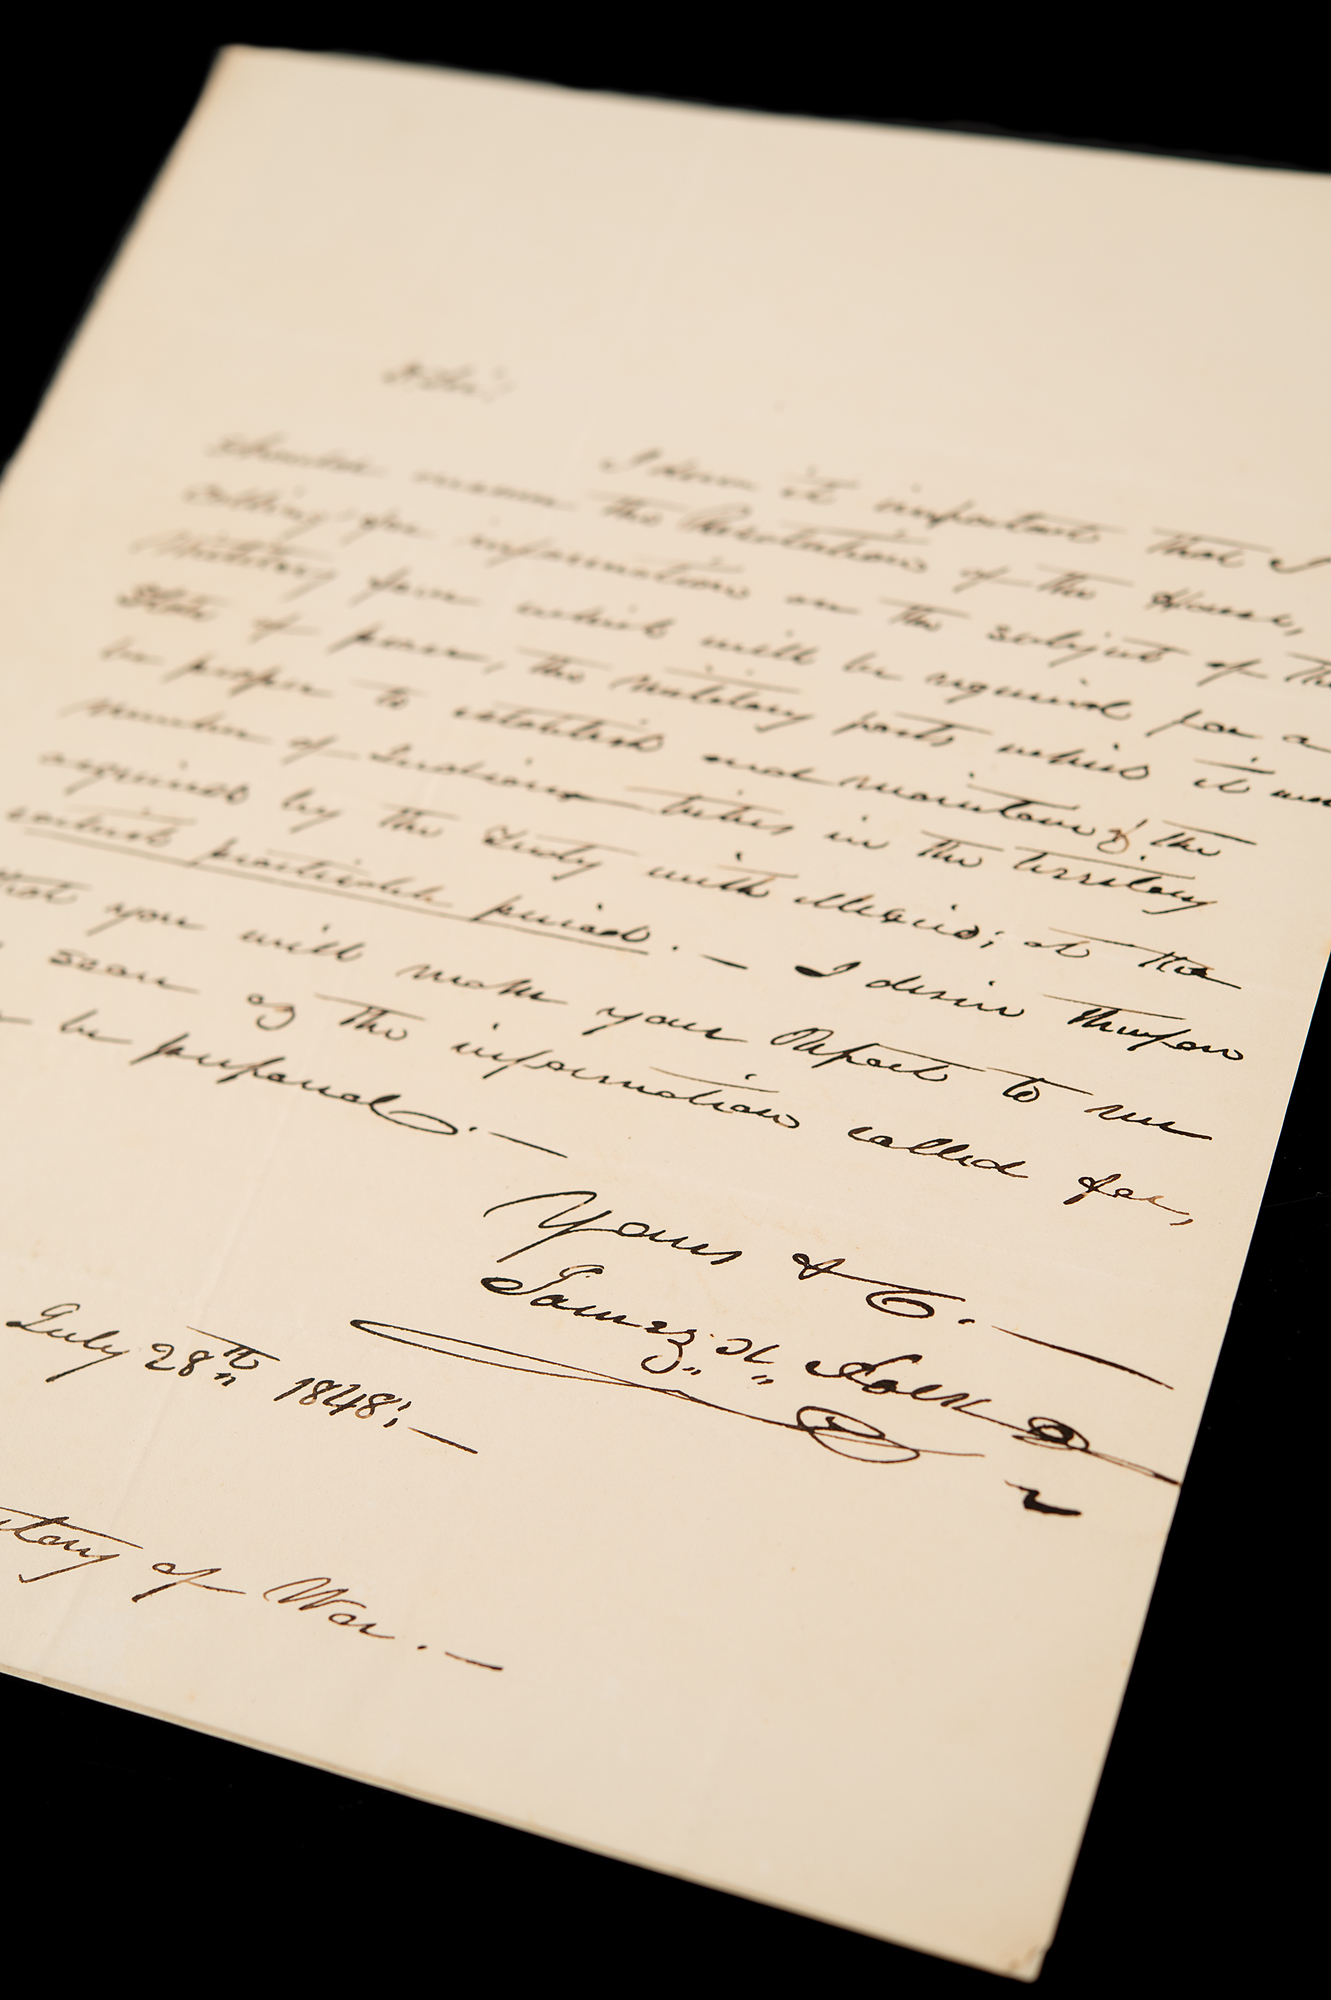 Sir:
I deem it important that I
should answer the Resolution of the House,
calling for information on the subject of the
Military force which will be required for a
State of peace, the military posts which it
be proper to establish and maintain, the
number of Indian tribes in the territory
acquired by the Treaty with Mexico; at the
earliest practicable period. — I desire therefore
that you will make your Report to me
soon as the information called for,
be prepared. —
Yours &C. —
James K. Polk
July 28th 1848; —
of War. —